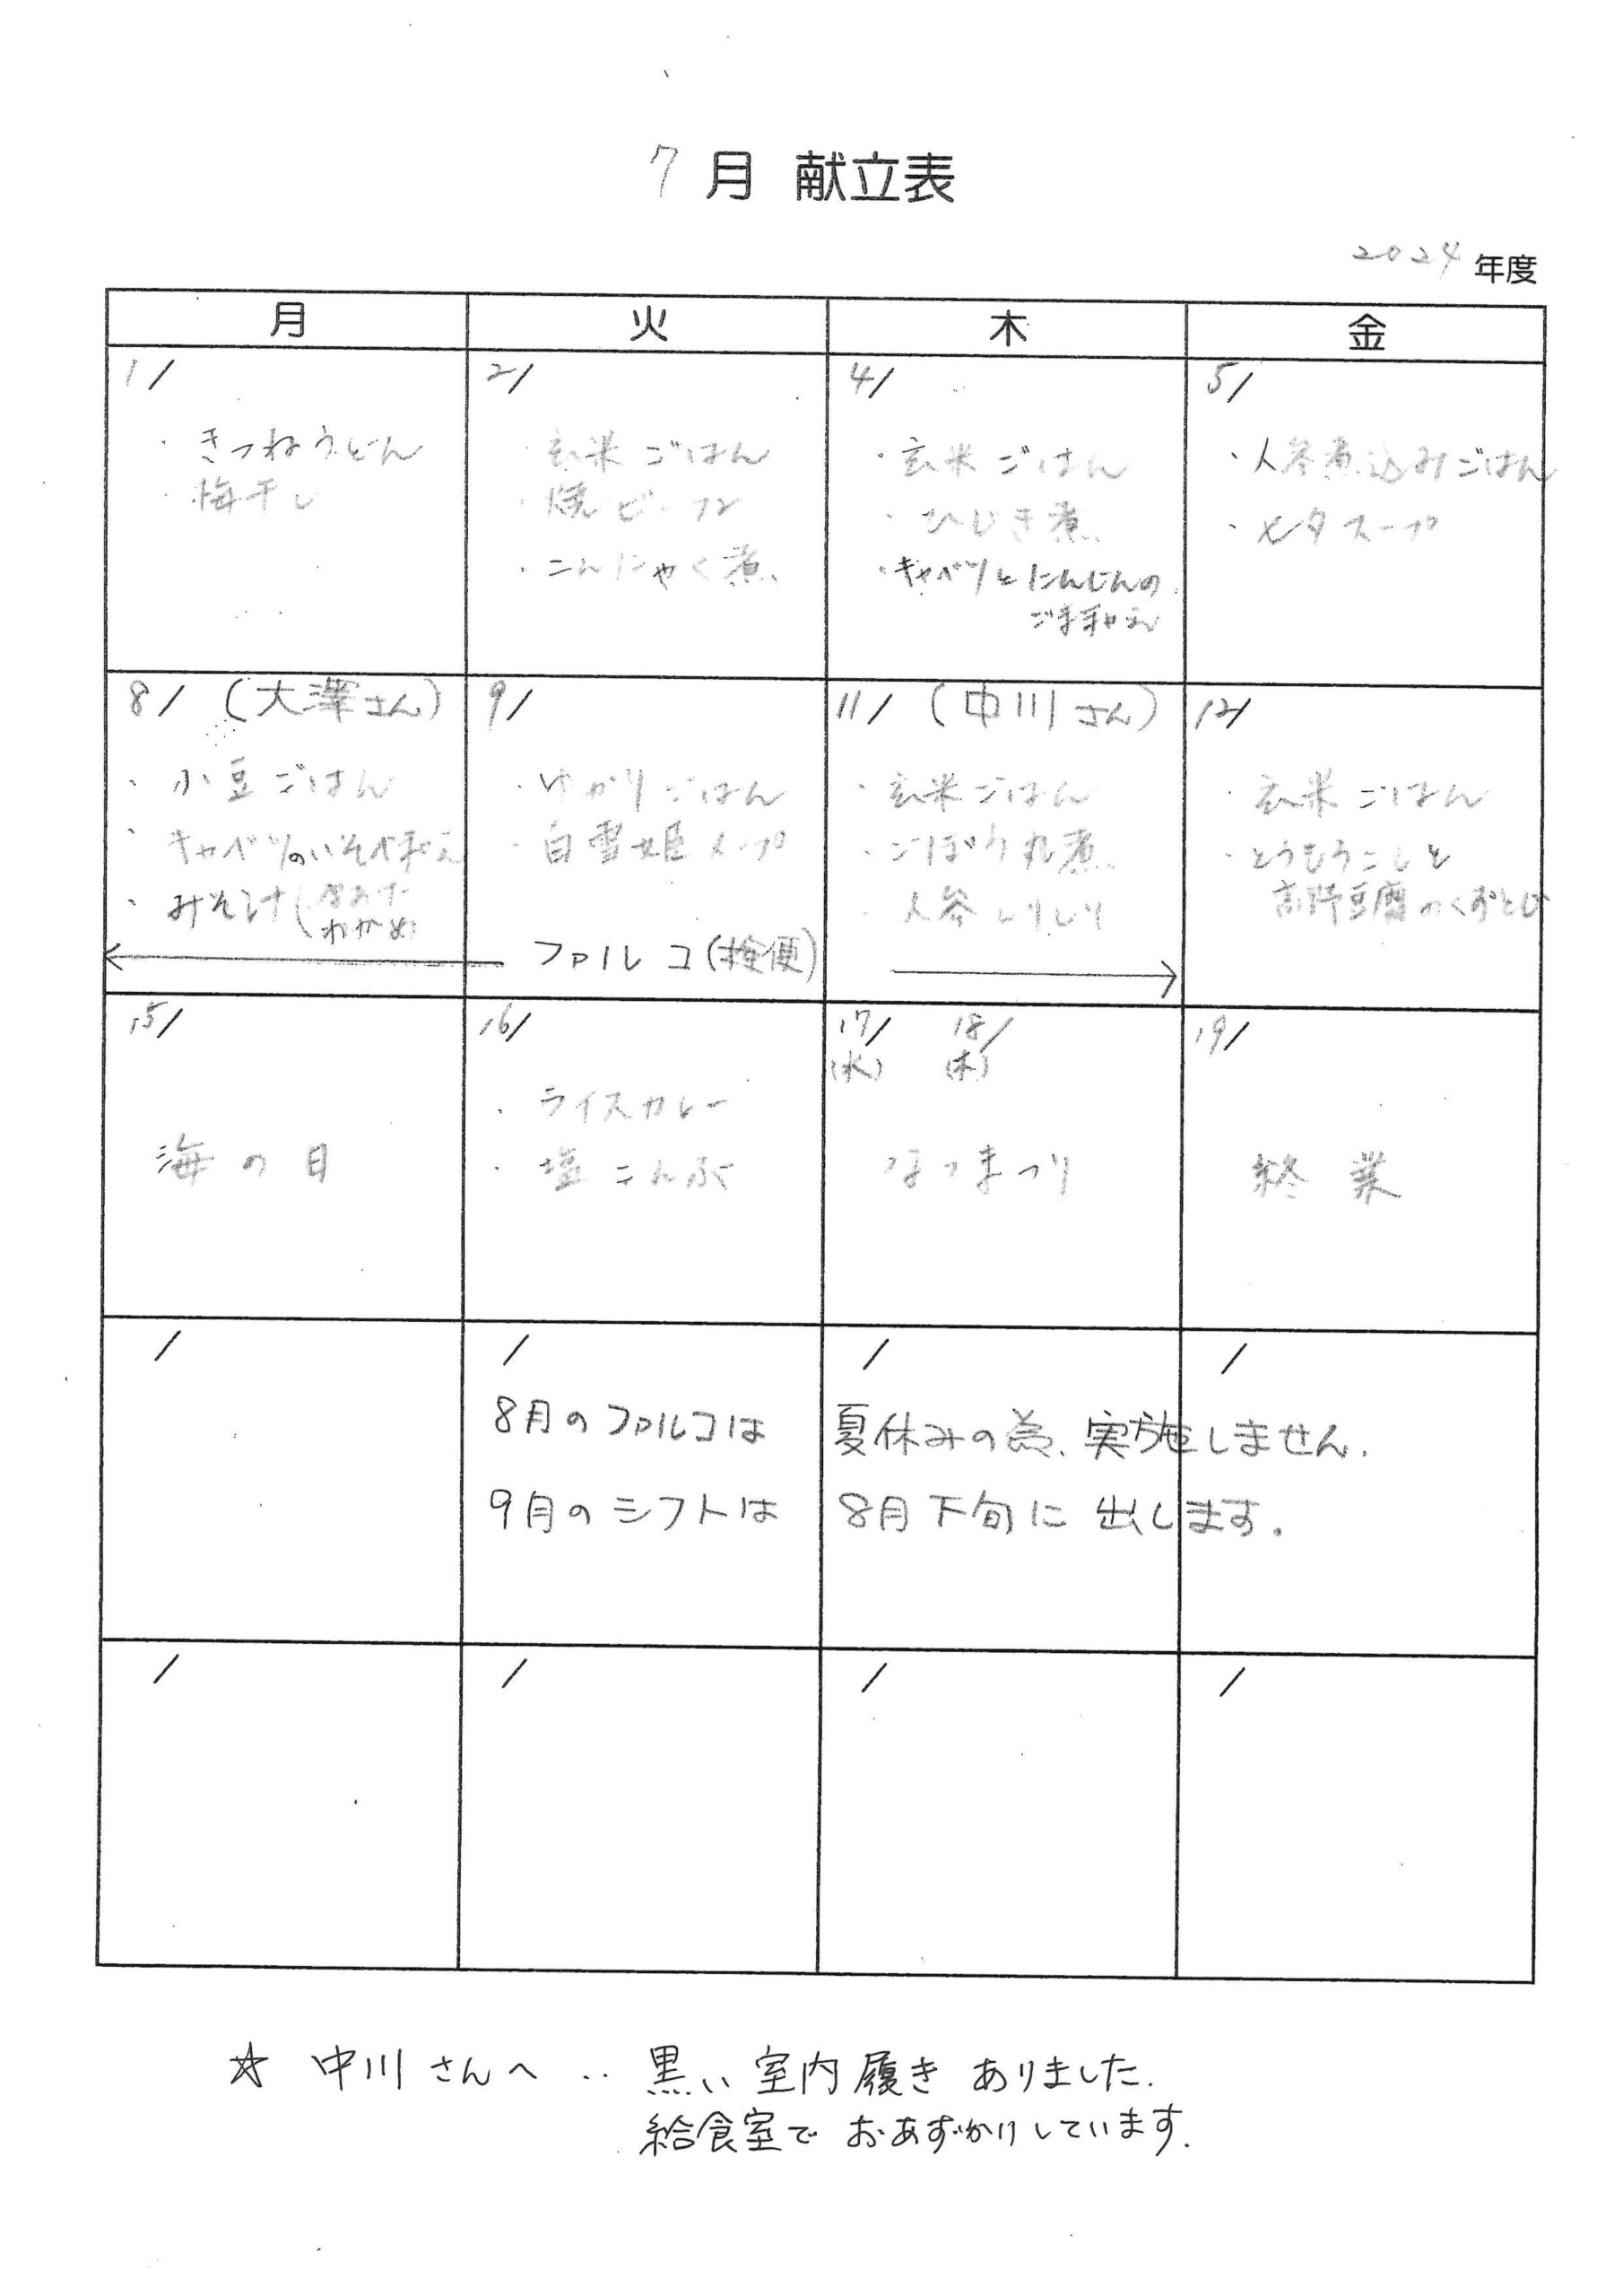 7月 献立表
2024年度
月 火 木 金
1/
・きつねうどん
・梅干し
2/
・玄米ごはん
・焼ビーフン
・こんにゃく煮
4/
・玄米ごはん
・ひじき煮
・キャベツとにんじんの
ごま和え
5/
・人参煮込みごはん
・七夕スープ
8/ (大澤さん)
・小豆ごはん
・キャベツのいそべ和え
・みそ汁(厚あげ
わかめ
9/
・ゆかりごはん
・白雪姫スープ
11/ (中川さん)
・玄米ごはん
・ごぼう丸煮
・人参しりしり
12/
・玄米ごはん
・とうもろこしと
高野豆腐のくずとじ
ファルコ(検便)
15/
海の日
16/
・ライスカレー
・塩こんぶ
17/ 18/
(水) (木)
なつまつり
19/
終業
/ / / /
8月のファルコは 夏休みの為、実施しません.
9月のシフトは 8月下旬に出します.
/ / / /
☆ 中川さんへ ‥ 黒い室内履きありました.
給食室でおあずかりしています.